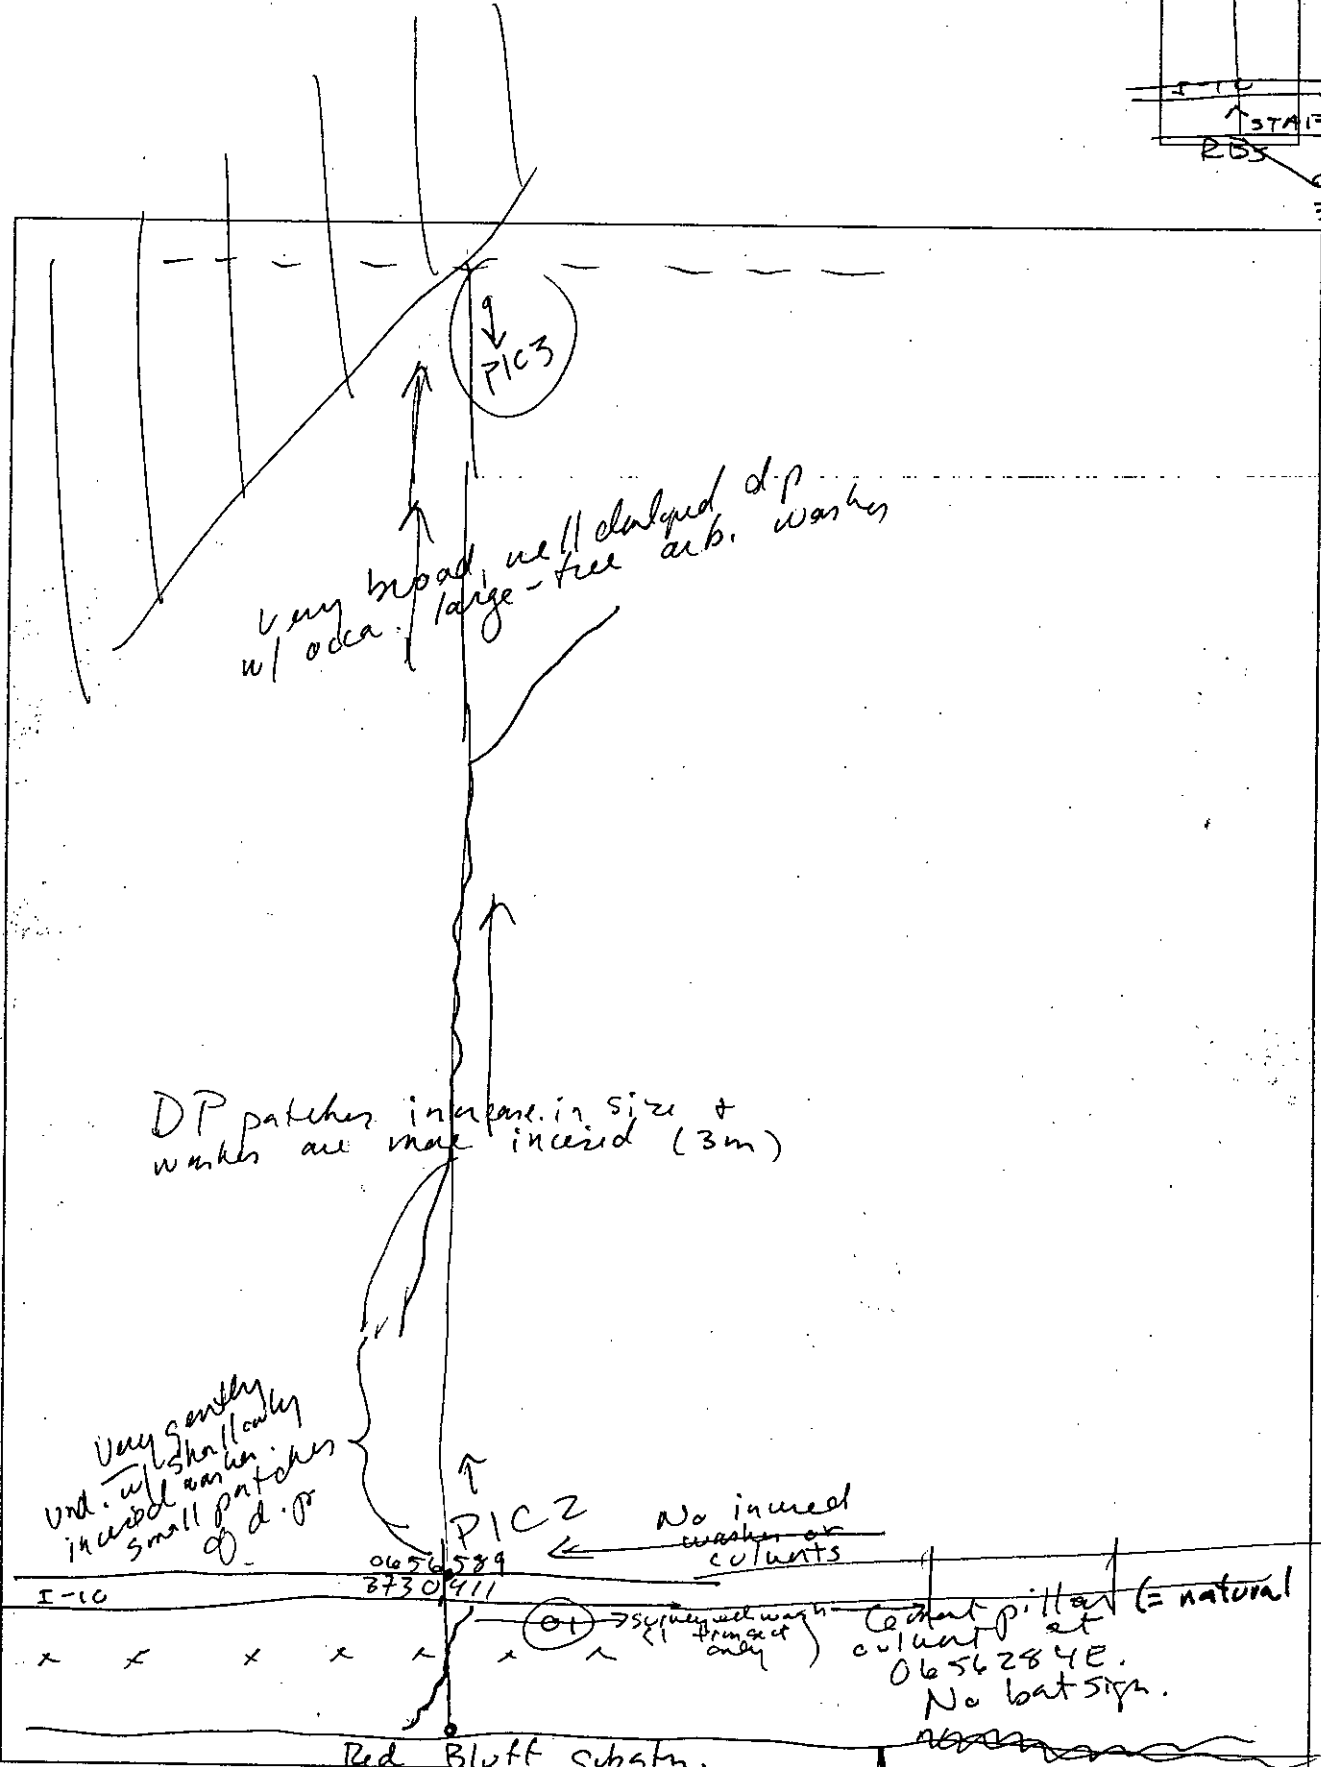 I-10
↑ START
RBS
PIC3
very broad, well developed d.p
w/ occa. large-tree arb. washes
DP patches increase in size +
washes are more incised (3m)
Very gently
und. w/ shallowly
incised washes.
small patches
of d.p
↑
PIC2
No incised
washes or
culverts
0656589
3730411
I-10
01 → Surveyed wash
(1 transect
only)
Cement pillar (= natural
culvert at
0656284E.
No bat sign.
x x x x x x x
Red Bluff substn.